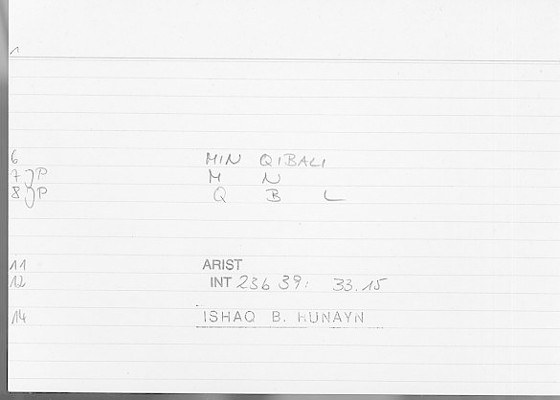 1
6 MIN QIBALI
7 P M N
8 P Q B L
11 ARIST
12 INT 236 39; 33.15
14 ISHAQ B. HUNAYN